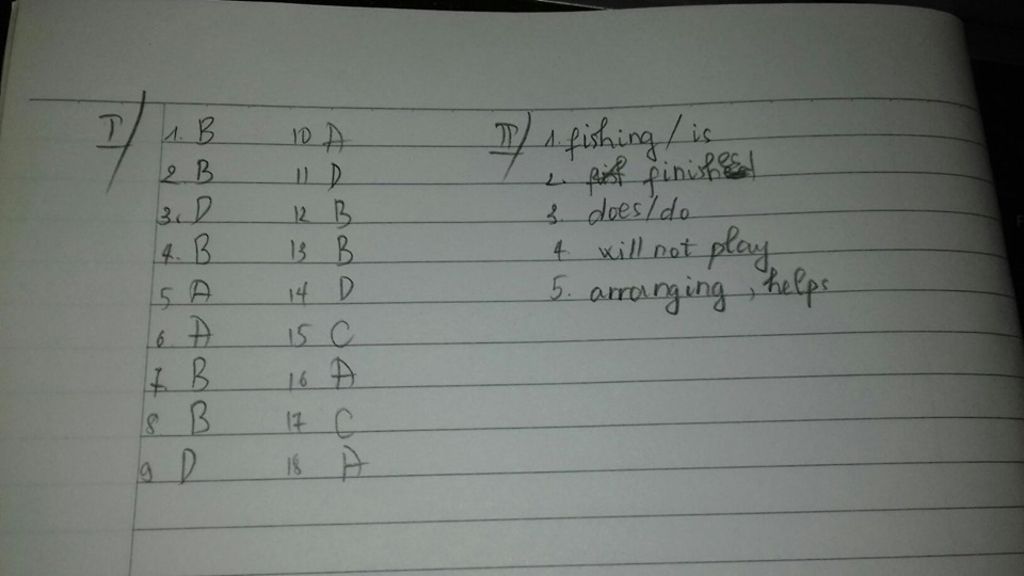 I/ 1. B 10 A II/ 1. fishing / is
2. B 11 D 2. finished
3. D 12 B 3. does/do
4. B 13 B 4 will not play
5 A 14 D 5. arranging , helps
6. A 15 C
7. B 16 A
8 B 17 C
9 D 18 A